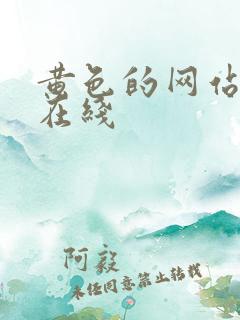 黄色的网站
在线
阿毅
未经同意禁止转载